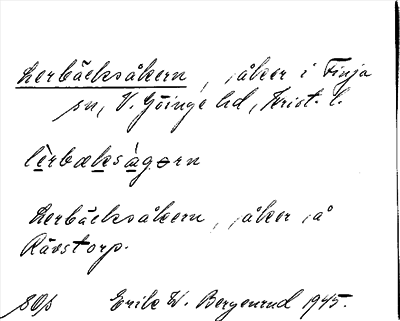 Lerbäcksåkern, åker i Finja
sn, V. Göinge hd, Krist. l.
lèrbæksàgɘrn
Lerbäcksåkern, åker å
Rävstorp.
sOp Erik W. Bergenrud 1945.